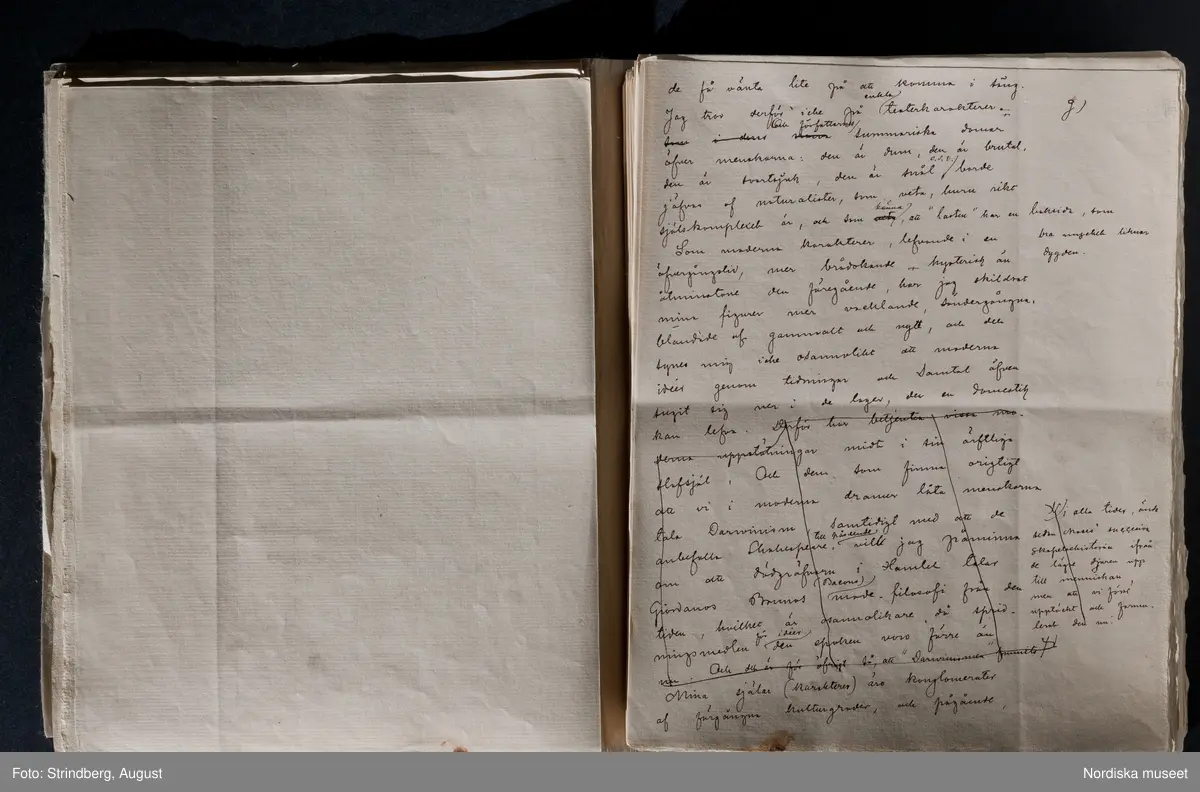 de få vänta lite på att komma i tång.
9)
enkla
Jag tror derför icke på teaterkarakterer.
Och författarnes
som i dens summariska domar
öfver menskorna: den är dum, den är brutal,
o.s.v.
den är svartsjuk, den är snål, borde
jäfvas af naturalister, som veta, huru rikt
känna
själskomplexet är, och som veta, att "lasten" har en baksida, som
bra mycket liknar
dygden.
Som moderna karakterer, lefvande i en
öfvergångstid, mer brådskande hysterisk än
åtminstone den föregående, har jag skildrat
mina figurer mer vacklande, söndergångna,
blandade af gammalt och nytt, och det
synes mig icke osannolikt att moderna
idéer genom tidningar och Samtal äfven
sugit sig ner i de lager, der en domestik
kan lefva. Derför har betjenten vissa mo-
derna uppstötningar midt i sin ärftliga
slafsjäl. Och dem som finna origtigt
att vi i moderna dramer låta menskorna
tala Darwinism samtidigt med att de
till påseende
anbefalla Shakespeare, vill jag påminna
om att dödgräfvarn i Hamlet talar
(Bacons)
Giordanos Brunos mode-filosofi från den
tiden, hvilket är osannolikare, då sprid-
för idéer
ningsmedlen den epoken voro färre än
nu. Och det är för öfrigt så, att "Darwinismen" funnits
i alla tider, ända
sedan Moses' successiva
skapelsehistoria ifrån
de lägre djuren upp
till menniskan,
men att vi först
upptäckt och formu-
lerat den nu.
Mina själar (karakterer) äro konglomerater
af förgångna kulturgrader, och pågående,
Foto: Strindberg, August
Nordiska museet